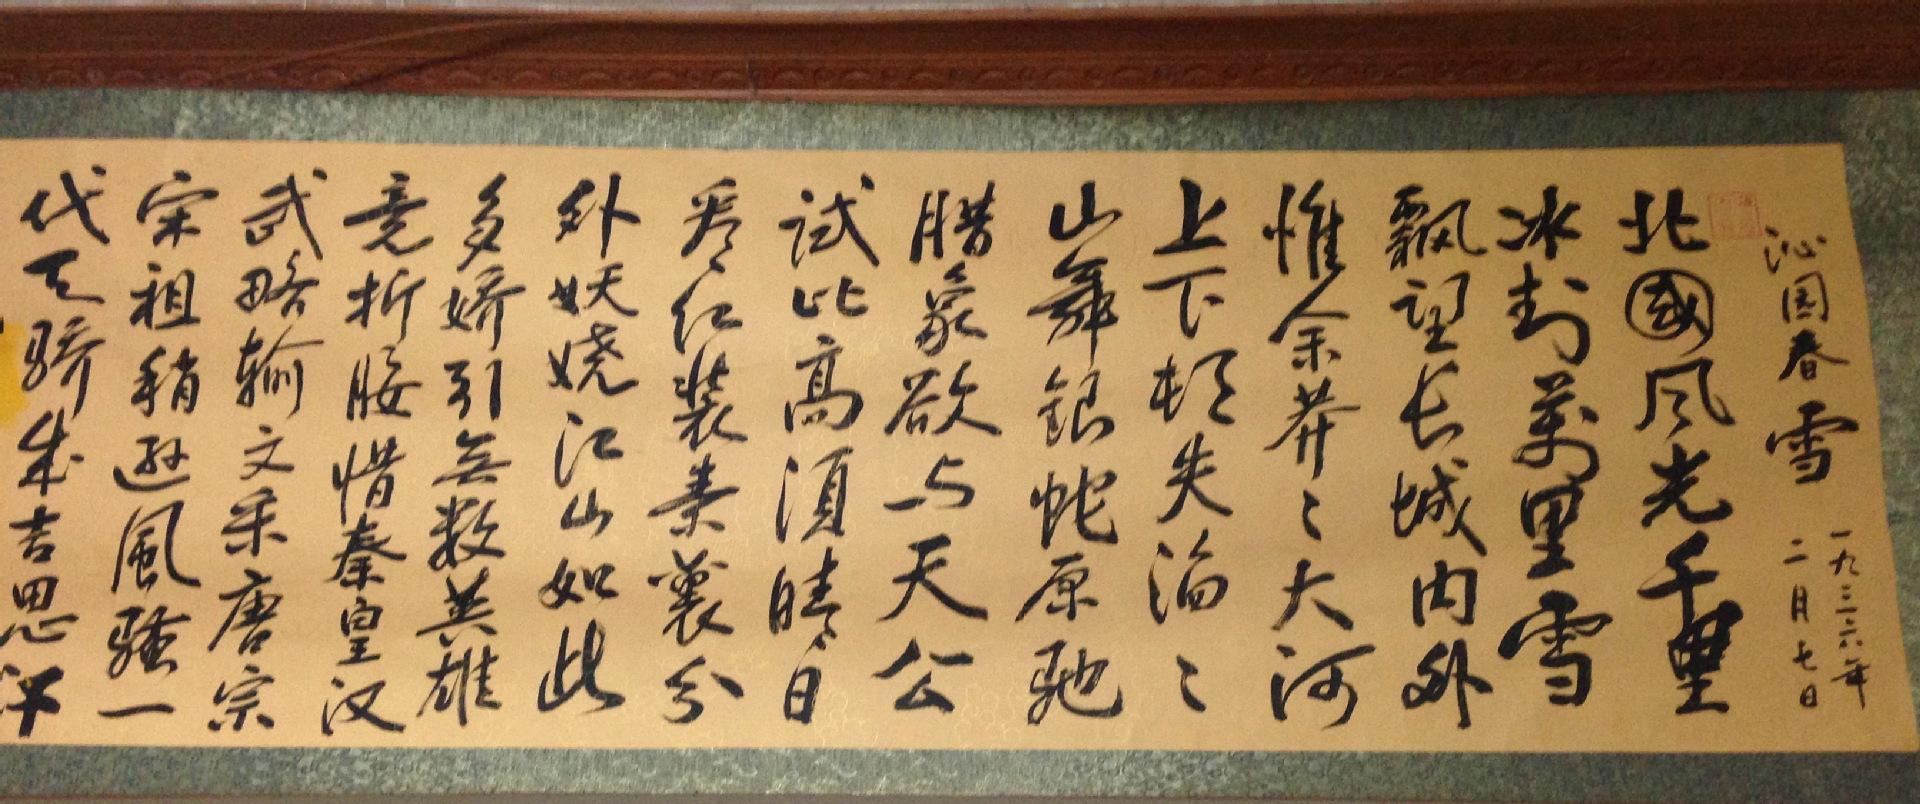 沁园春 雪
一九三六年
二月七日
北國风光千里
冰封萬里雪
飘望长城内外
惟余莽〻大河
上下顿失滔〻
山舞银蛇原驰
腊象欲与天公
试比高须晴日
看红装素裹分
外妖娆江山如此
多娇引無数英雄
竞折腰惜秦皇汉
武略输文采唐宗
宋祖稍逊風骚一
代天骄成吉思汗